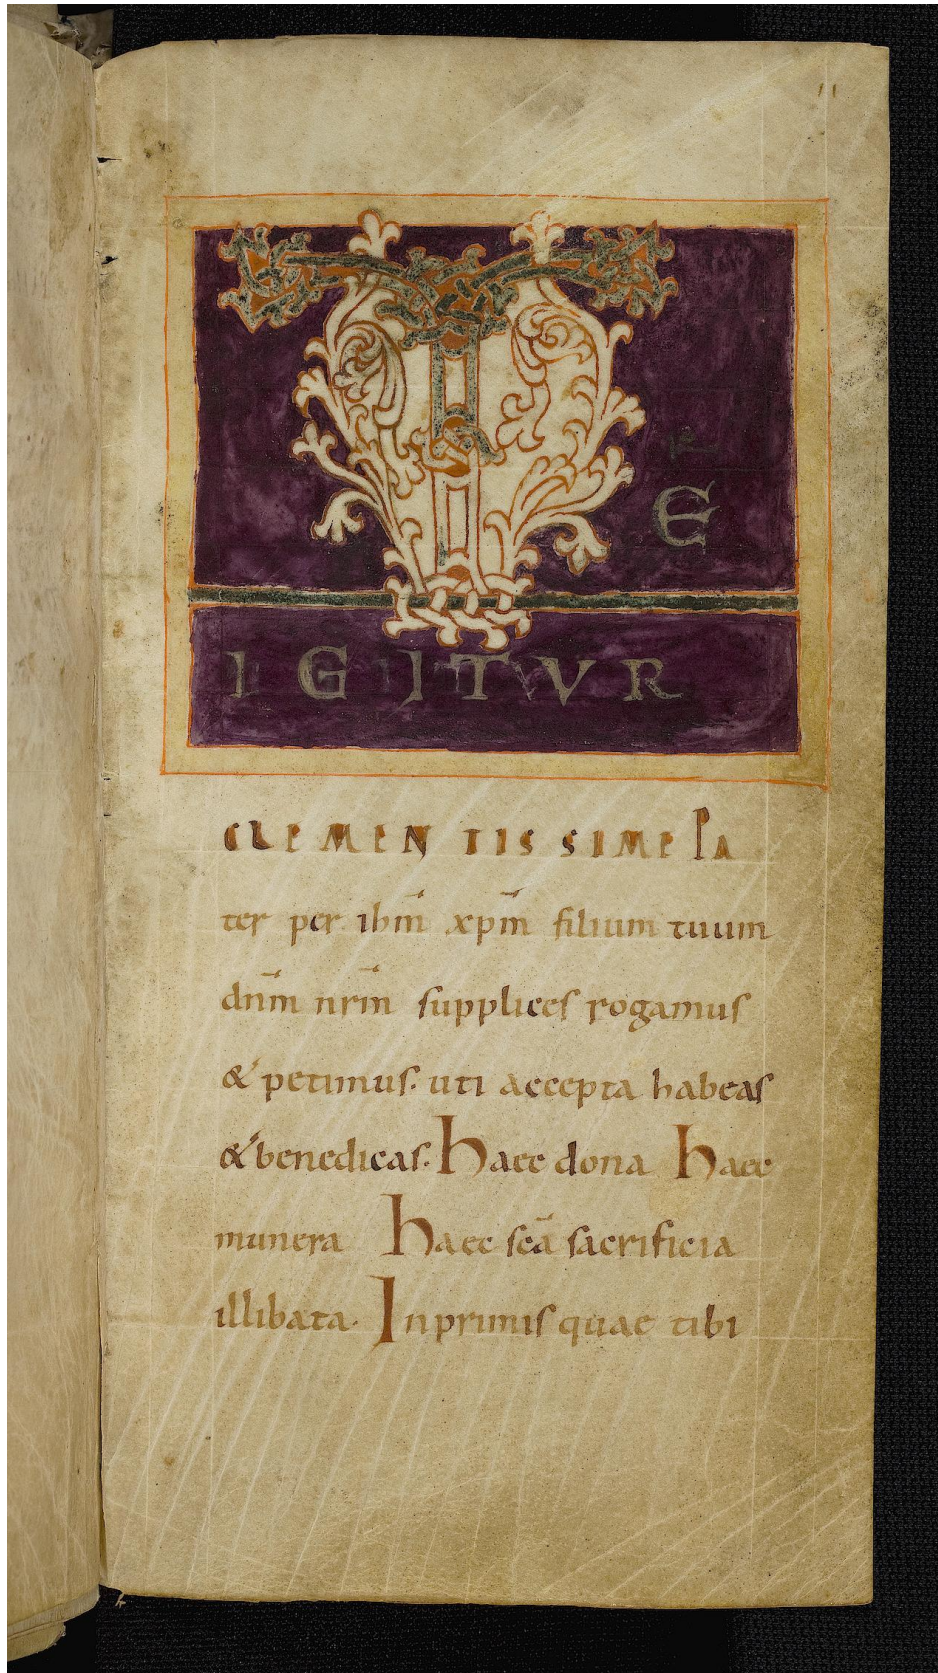 11
TE
IGITVR
CLEMENTISSIME PA
ter per ihm̅ xpm̅ filium tuum
dnm̅ nrm̅ supplices rogamus
& petimus. uti accepta habeas
& benedicas. Haec dona Haec
munera Haec sc̅a sacrificia
illibata. In primis quae tibi